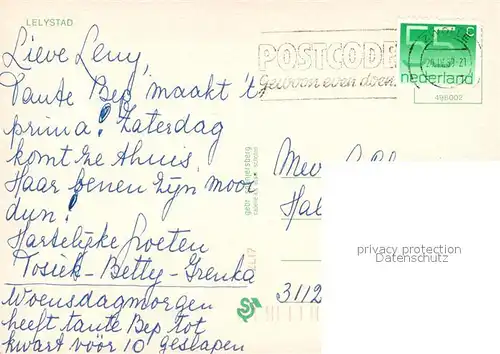 LELYSTAD
Lieve Leny,
Tante Bep maakt 't
prima! Zaterdag
komt ze thuis
Haar benen zijn mooi
dun!
Hartelijke groeten
Tosiek-Betty-Grenka
Woensdagmorgen
heeft tante Bep tot
kwart vóór 10 geslapen
POSTCODE
gewoon even doen.
55 c
nederland
496002
Mev
Hal
3112
privacy protection
Datenschutz